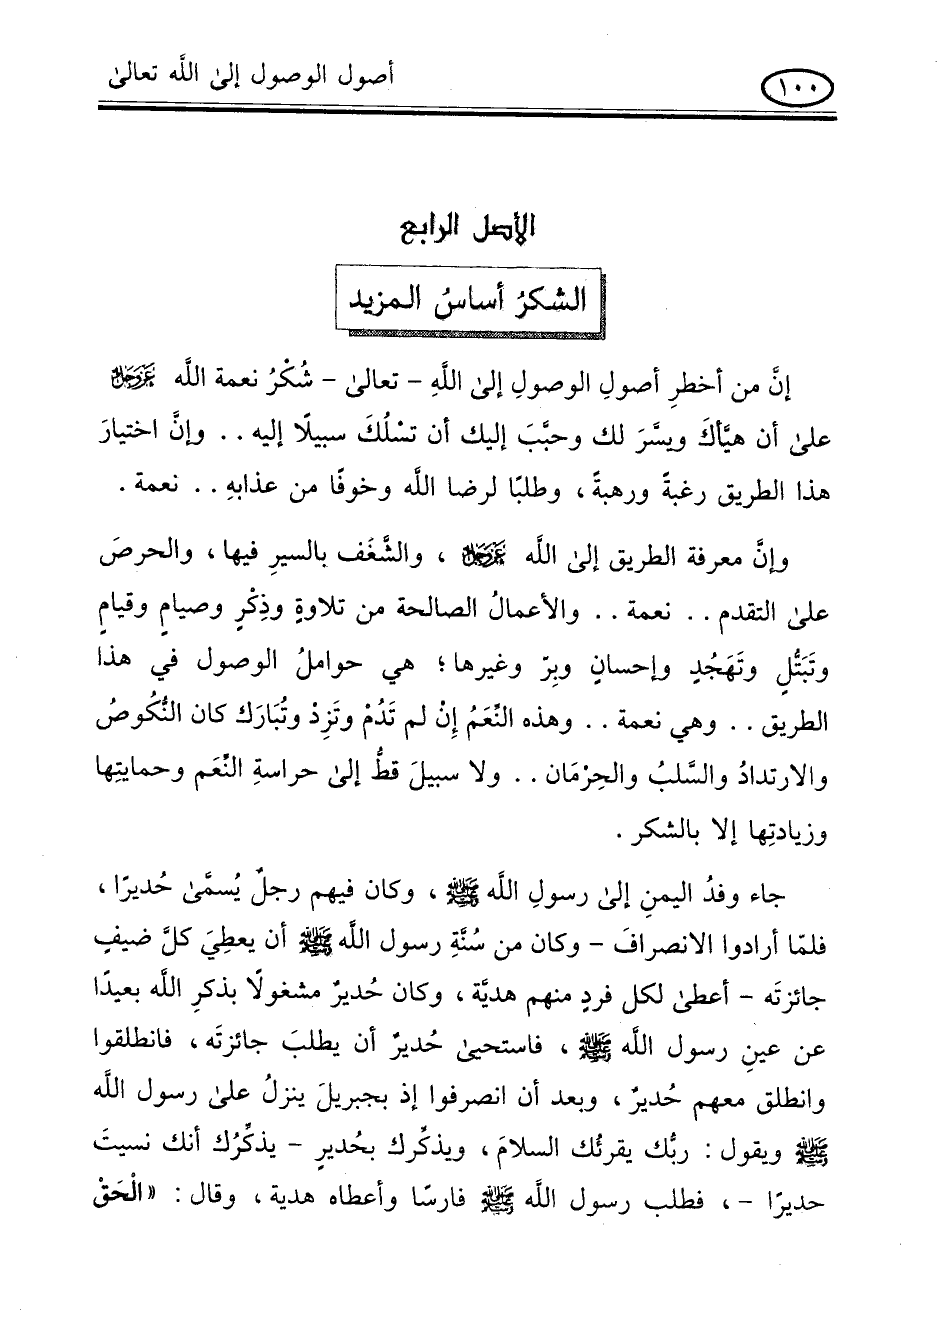 ١٠٠
أصول الوصول إلىٰ اللَّه تعالىٰ
الأصل الرابع
الشكرُ أساسُ المزيد
إنَّ من أخطرِ أصولِ الوصولِ إلىٰ اللَّهِ - تعالىٰ - شُكْرُ نعمة اللَّه عَزَّوَجَلَّ
علىٰ أن هيَّأكَ ويسَّرَ لك وحبَّبَ إليك أن تسْلُكَ سبيلًا إليه . . وإنَّ اختيارَ
هذا الطريق رغبةً ورهبةً ، وطلبًا لرضا اللَّه وخوفًا من عذابهِ . . نعمة .
وإنَّ معرفة الطريق إلىٰ اللَّه عَزَّوَجَلَّ ، والشَّغَف بالسيرِ فيها ، والحرصَ
علىٰ التقدم . . نعمة . . والأعمالُ الصالحة من تلاوةٍ وذِكْرٍ وصيامٍ وقيامٍ
وتَبَتُّلٍ وتَهَجُدٍ وإحسانٍ وبِرّ وغيرها ؛ هي حواملُ الوصول في هذا
الطريق . . وهي نعمة . . وهذه النِّعَمُ إِنْ لم تَدُمْ وتَزِدْ وتُبَارَك كان النُّكُوصُ
والارتدادُ والسَّلبُ والحِرْمَان . . ولا سبيلَ قطُّ إلىٰ حراسةِ النِّعَم وحمايتِها
وزيادتِها إلا بالشكر .
جاء وفدُ اليمنِ إلىٰ رسولِ اللَّه ﷺ ، وكان فيهم رجلٌ يُسمَّىٰ حُديرًا ،
فلمّا أرادوا الانصرافَ - وكان من سُنَّةِ رسول اللَّه ﷺ أن يعطِيَ كلَّ ضيفٍ
جائزتَه - أعطىٰ لكل فردٍ منهم هديَّة ، وكان حُديرٌ مشغولًا بذكرِ اللَّه بعيدًا
عن عينِ رسول اللَّه ﷺ ، فاستحيىٰ حُديرٌ أن يطلبَ جائزتَه ، فانطلقوا
وانطلق معهم حُديرٌ ، وبعد أن انصرفوا إذ بجبريلَ ينزلُ علىٰ رسول اللَّه
ﷺ ويقول : ربُّك يقرئُك السلامَ ، ويذكِّرك بحُديرٍ - يذكِّرُك أنك نسيتَ
حديرًا - ، فطلب رسول اللَّه ﷺ فارسًا وأعطاه هدية ، وقال : «الْحَقْ